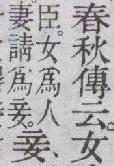 春秋傳云女
臣。女爲人
妻請爲妾。妾、